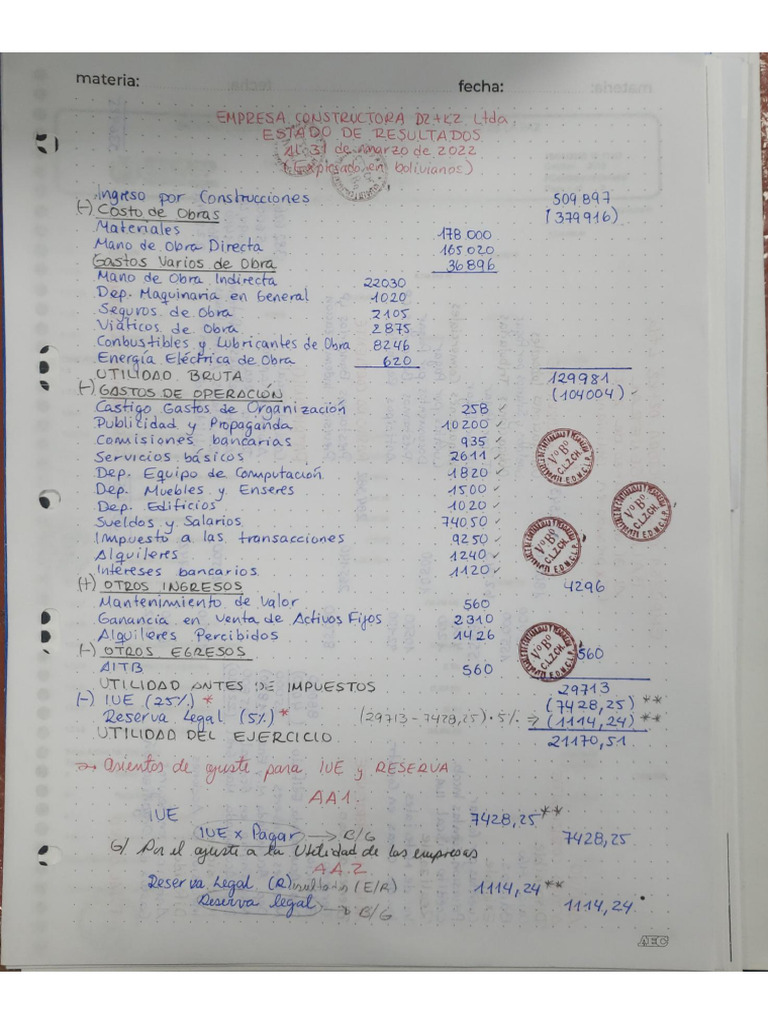 materia: fecha:
EMPRESA CONSTRUCTORA DZ+KZ Ltda.
ESTADO DE RESULTADOS
Al 31 de marzo de 2022
(Expresado en bolivianos)
Ingreso por Construcciones 509897
(-) Costo de Obras (379916)
Materiales 178000
Mano de Obra Directa 165020
Gastos Varios de Obra 36896
Mano de Obra Indirecta 22030
Dep. Maquinaria en General 1020
Seguros de Obra 2105
Viáticos de Obra 2875
Conbustibles y Lubricantes de Obra 8246
Energía Eléctrica de Obra 620
UTILIDAD BRUTA 129981
(-) GASTOS DE OPERACIÓN (104004) ✓
Castigo Gastos de Organización 258 ✓
Publicidad y Propaganda 10200 ✓
Comisiones bancarias 935 ✓
Servicios básicos 2611 ✓
Dep. Equipo de Computación 1820 ✓
Dep. Muebles y Enseres 1500 ✓
Dep. Edificios 1020 ✓
Sueldos y Salarios 74050 ✓
Impuesto a las transacciones 9250 ✓
Alquileres 1240 ✓
Intereses bancarios 1120 ✓
(+) OTROS INGRESOS 4296
Mantenimiento de Valor 560
Ganancia en Venta de Activos Fijos 2310
Alquileres Percibidos 1426
(-) OTROS EGRESOS 560
AITB 560
UTILIDAD ANTES DE IMPUESTOS 29713
(-) IUE (25%) * (7428,25) **
Reserva Legal (5%) * (29713-7428,25)·5% ⇒ (1114,24) **
UTILIDAD DEL EJERCICIO 21170,51
→ Asientos de ajuste para IUE y RESERVA
AA1.
IUE 7428,25 **
IUE x Pagar → B/G 7428,25
G/ Por el ajuste a la Utilidad de las empresas
A.A.2
Reserva Legal (R)esultados (E/R) 1114,24 **
Reserva legal → B/G 1114,24
AEC
VºBº
C.L.Z.CH.
VºBº
C.L.Z.CH.
VºBº
C.L.Z.CH.
VºBº
C.L.Z.CH.